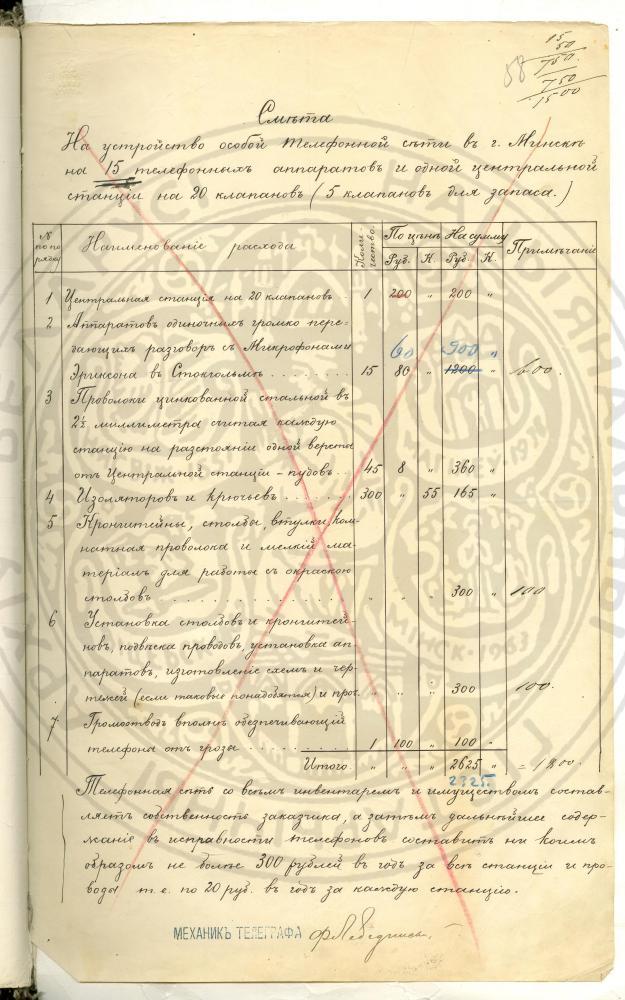 15
50
750.
750
1500
58
Смѣта
На устройство особой телефонной сѣти въ г. Минскѣ
на 15 телефонныхъ аппаратовъ и одной центральной
станціи на 20 клапановъ (5 клапановъ для запаса.)
№ по порядку Наименованіе расхода Количество. По цѣнѣ На сумму Примѣчаніе
Руб. К. Руб. К.
1 Центральная станція на 20 клапановъ . . 1 200 " 200 "
2 Аппаратовъ одиночныхъ громко пере-
дающихъ разговоръ съ Микрофонами 60 900 "
Эриксона въ Стокгольмѣ . . . . . . . . 15 80 " 1200 600.
3 Проволоки цинкованной стальной въ
2½ миллиметра считая каждую
станцію на разстояніи одной версты
отъ Центральной станціи - пудовъ . . 45 8 " 360 "
4 Изоляторовъ и крючьевъ . . . . . . 300 " 55 165 "
5 Кронштейны, столбы, втулки, ком-
натная проволока и мелкій ма-
теріалъ для работы съ окраскою
столбовъ . . . . . . . . . . . . " " " 300 " 100
6 Установка столбовъ и кронштей-
новъ, подвѣска проводовъ, установка ап-
паратовъ, изготовленіе схемъ и чер-
тежей (если таковые понадобятся) и проч. " " " 300 " 100.
7 Громоотводъ вполнѣ обезпечивающій
телефоны отъ грозы . . . . . . 1 100 " 100 "
Итого. " " " 2625 " = 1800.
2325.
Телефонная сѣть со всѣмъ инвентаремъ и имуществомъ состав-
ляетъ собственность заказчика, а затѣмъ дальнѣйшее содер-
жаніе въ исправности телефоновъ составитъ ни коимъ
образомъ не болѣе 300 рублей въ годъ за всѣ станціи и про-
воды т.е. по 20 руб. въ годъ за каждую станцію.
МЕХАНИКЪ ТЕЛЕГРАФА